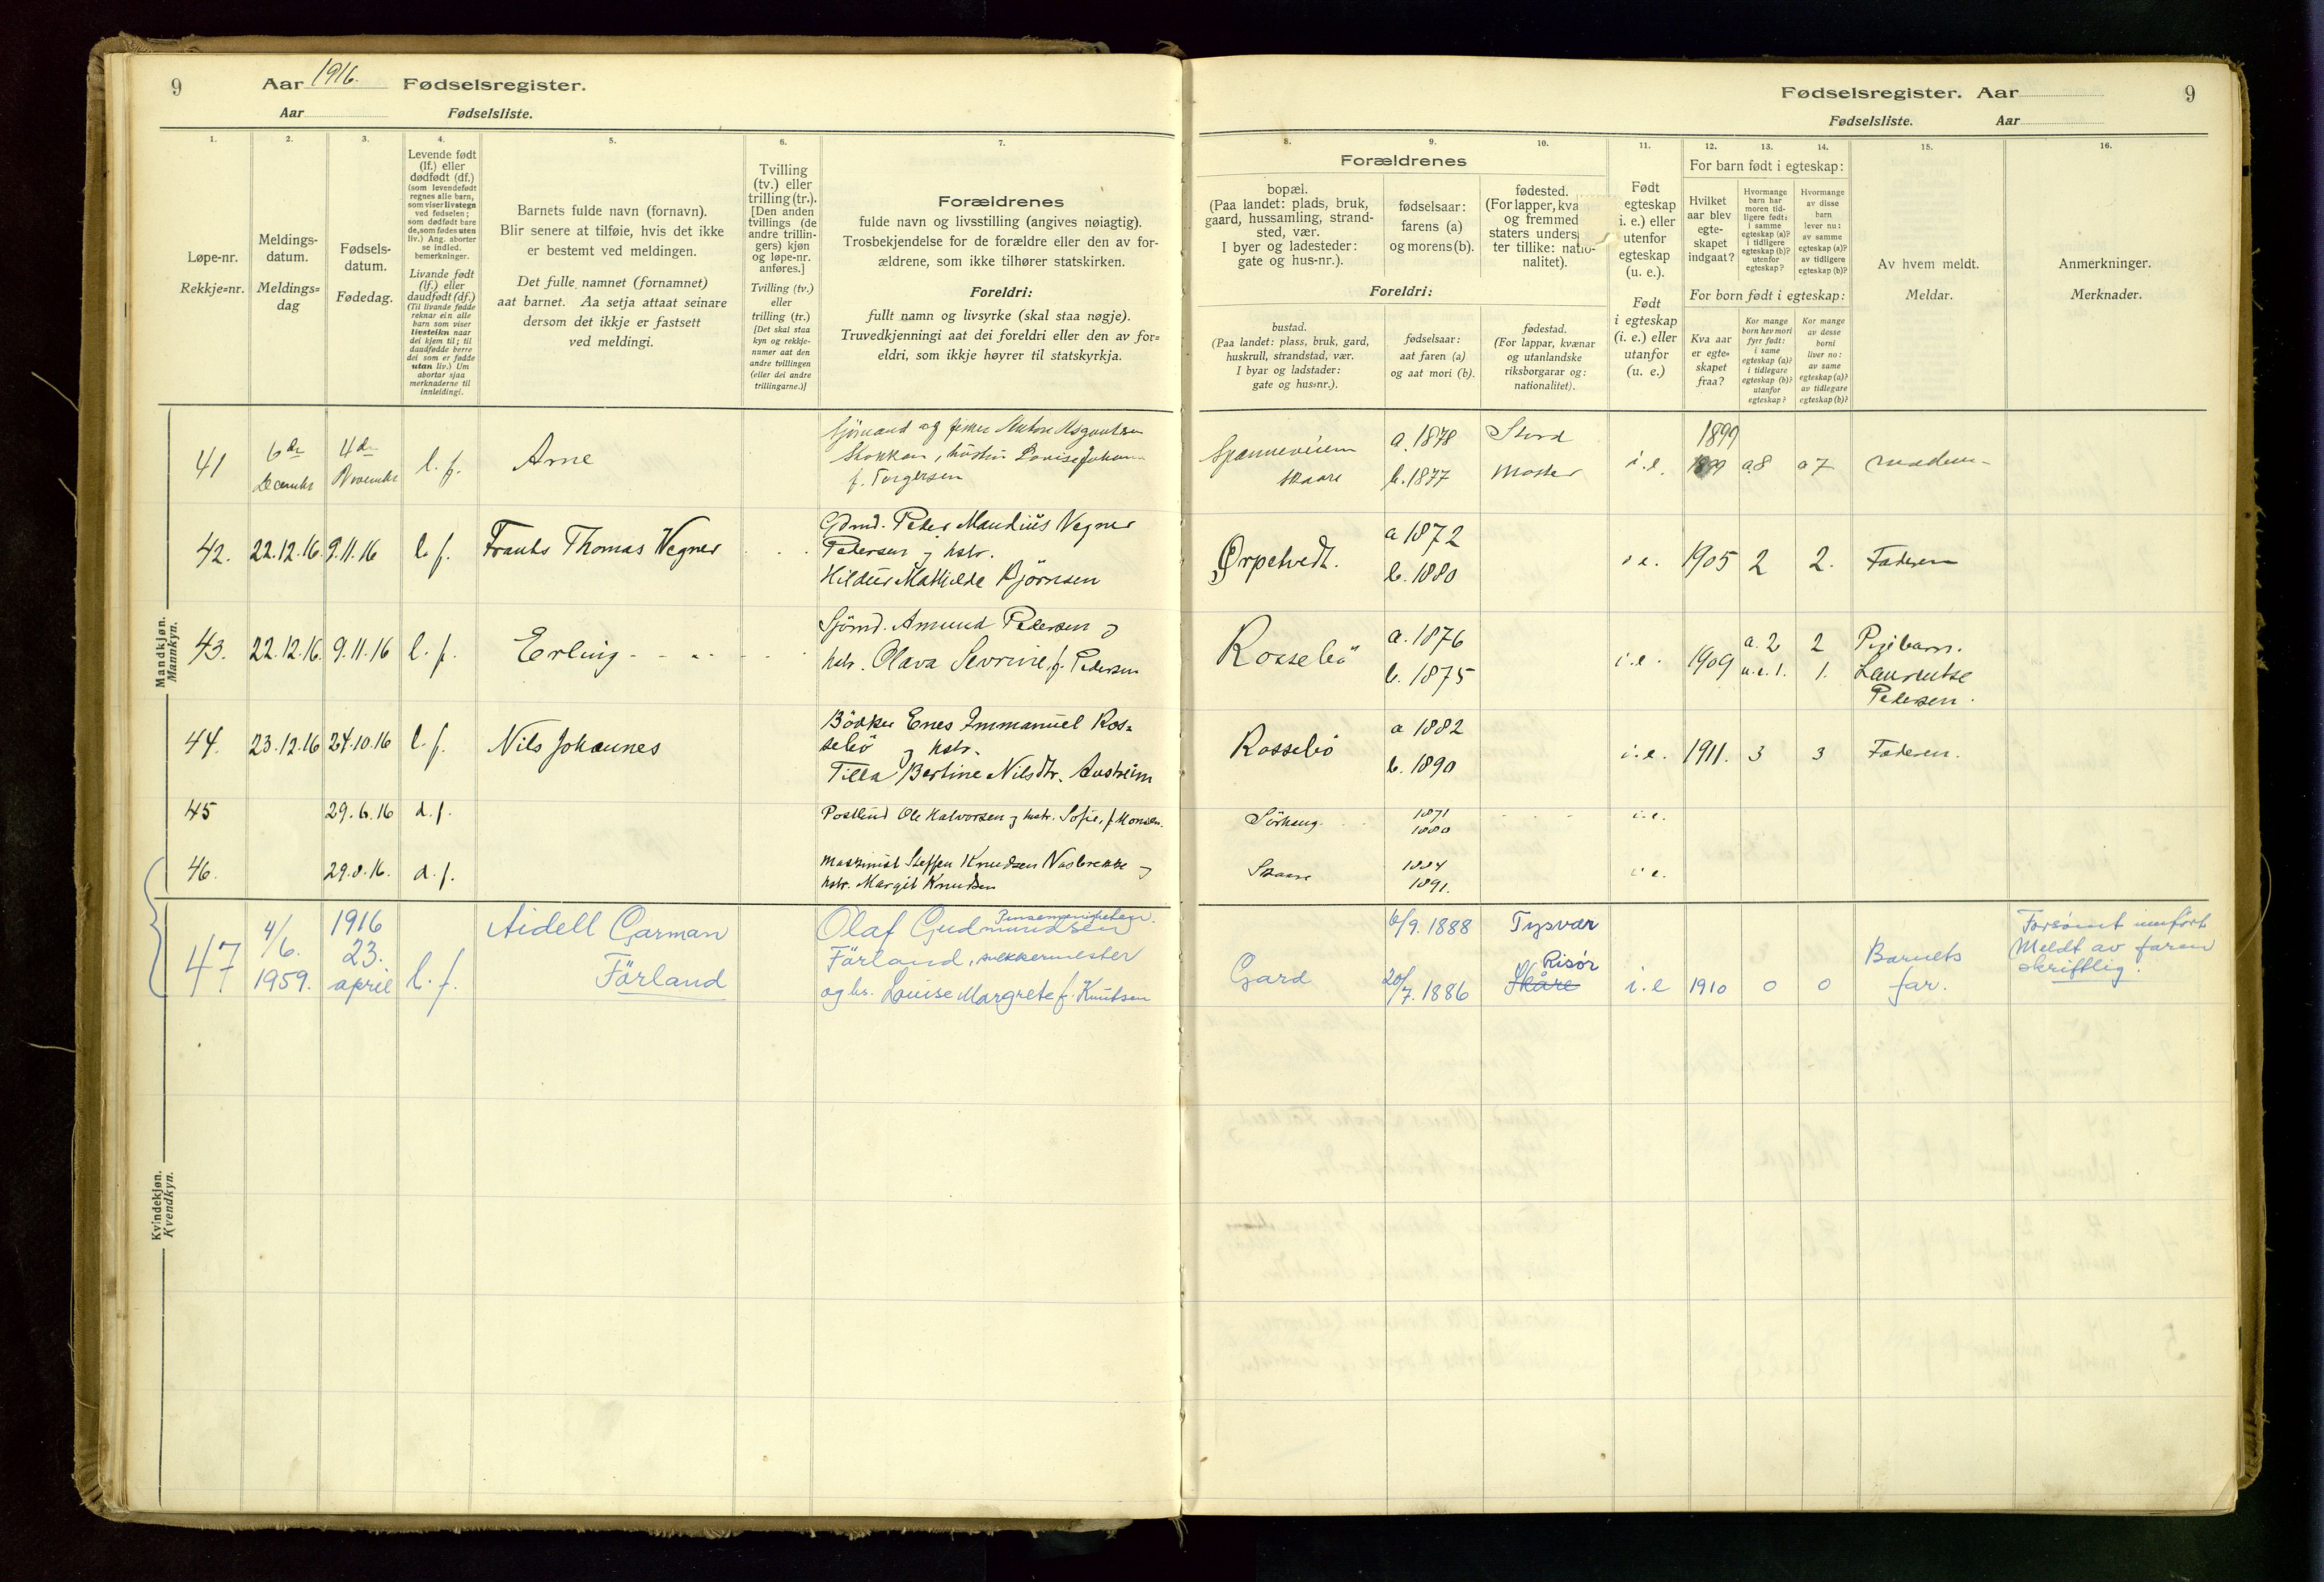 9
Aar 1916. Fødselsregister.
Aar Fødselsliste.
Fødselsregister. Aar
9
Fødselsliste. Aar
1. 2. 3. 4. 5. 6. 7.
8. 9. 10. 11. 12. 13. 14. 15. 16.
Løpe-nr.
Rekkje=nr.
Meldings-
datum.
Meldings=
dag
Fødsels-
datum.
Fødedag.
Levende født
(lf.) eller
dødfødt (df.)
(som levendefødt
regnes alle barn,
som viser livstegn
ved fødselen;
som dødfødt bare
de, som fødes uten
liv.) Ang. aborter
se indled.
bemerkninger.
Livande født
(lf.) eller
daudfødt (df.)
(Til livande fødde
reknar ein alle
barn som viser
livsteikn naar
dei kjem til; til
daudfødde berre
dei som er fødde
utan liv.) Um
abortar sjaa
merknaderne til
innleidingi.
Barnets fulde navn (fornavn).
Blir senere at tilføie, hvis det ikke
er bestemt ved meldingen.
Det fulle namnet (fornamnet)
aat barnet. Aa setja attaat seinare
dersom det ikkje er fastsett
ved meldingi.
Tvilling
(tv.) eller
trilling (tr.).
[Den anden
tvillings (de
andre trillin-
gers) kjøn
og løpe-nr.
anføres.]
Tvilling (tv.)
eller
trilling (tr.)
[Det skal staa
kyn og rekkje-
numer aat den
andre tvillingen
(eller dei andre
trillingarne.)]
Forældrenes
fulde navn og livsstilling (angives nøiagtig).
Trosbekjendelse for de forældre eller den av for-
ældrene, som ikke tilhører statskirken.
Foreldri:
fullt namn og livsyrke (skal staa nøgje).
Truvedkjenningi aat dei foreldri eller den av for=
eldri, som ikkje høyrer til statskyrkja.
Forældrenes
bopæl.
(Paa landet: plads, bruk,
gaard, hussamling, strand-
sted, vær.
I byer og ladesteder:
gate og hus-nr.).
fødselsaar:
farens (a)
og morens (b).
fødested.
(For lapper, kva
og fremmed
staters unders
ter tillike: natio-
nalitet).
Foreldri:
bustad.
(Paa landet: plass, bruk, gard,
huskrull, strandstad, vær.
I byar og ladstader:
gate og hus=nr.).
fødselsaar:
aat faren (a)
og aat mori (b).
fødestad.
(For lappar, kvænar
og utanlandske
riksborgarar og:
nationalitet).
Født
i egteskap
(i. e.) eller
utenfor
egteskap
(u. e.).
Født
i egteskap
(i. e.) eller
utanfor
(u. e.)
For barn født i egteskap:
Hvilket
aar blev
egte-
skapet
indgaat?
Hvormange
barn har
moren tid-
ligere født:
i samme
egteskap (a)?
i tidligere
egteskap (b)?
utenfor
egteskap?
Hvormange
av disse
barn
lever nu:
av samme
egteskap (a)?
av tidligere
egteskap (b)?
For born født i egteskap:
Kva aar
er egte=
skapet
fraa?
Kor mange
born hev mori
fyrr født:
i same
egteskap (a)?
i tidlegare
egteskap (b)?
utanfor
egteskap?
Kor mange
av desse
borni
liver no:
av same
egteskap (a)?
av tidlegare
egteskap (b)?
Av hvem meldt.
Meldar.
Anmerkninger.
Merknader.
Mandkjøn.
Mannkyn.
Kvindekjøn.
Kvendkyn.
41 6de December 4de November l. f. Arne
Sjømand og fisker Anton
Stokkan, hustru Lovise
f. Torgersen
Spanneveien
Skaare
a. 1878
b. 1877
Stord
Moster
i. e. 1899
1899 a8 a7
42. 22.12.16 9.11.16 l. f. Frants Thomas Vegner
Gdmd. Peder Mandius Vegner
Pedersen og hstr.
Hildur Mathilde Bjørnsen
Ørpetvedt.
a 1872
b. 1880
i e. 1905 2 2. Faderen
43. 22.12.16. 9.11.16 l. f. Erling
Sjömd. Amund Pedersen og
hstr. Olava Sevrine, f. Pedersen
Rossebö
a. 1876
b. 1875
i. e. 1909 a. 2 2
u. e. 1. 1.
Pleiebarn.
Lauritse
Pedersen.
44. 23.12.16 24.10.16 l. f. Nils Johannes
Bödker Enes Immanuel Ros=
sebö og hstr.
Tilla Bertine Nilsdtr. Austreim
Rossebö
a 1882
b. 1890
i. e. 1911. 3 3 Faderen.
45 29.6.16 d. f.
Postbud Ole Halvorsen og hustr. Sofie, f. Monsen.
Sörhaug.
1871
1880
i. e.
46. 29.8.16. d. f.
Maskinist Steffen Knudsen Nesbrekke og
hstr. Margit Knudsen
Skaare
1884
1891.
i e.
47 4/6. 1959. 1916 23. april l. f. Aidell Garman
Förland
Pinsemenigheten.
Olaf Gudmundsen
Förland, blikkenmester
og hr. Louise Margrete f. Knutsen
Gard
6/9. 1888
20/7. 1886
Tysvær
Risør
Skåre
i. e 1910 0 0
Barnets
far.
Forsømt innført
Meldt av faren
skriftlig.